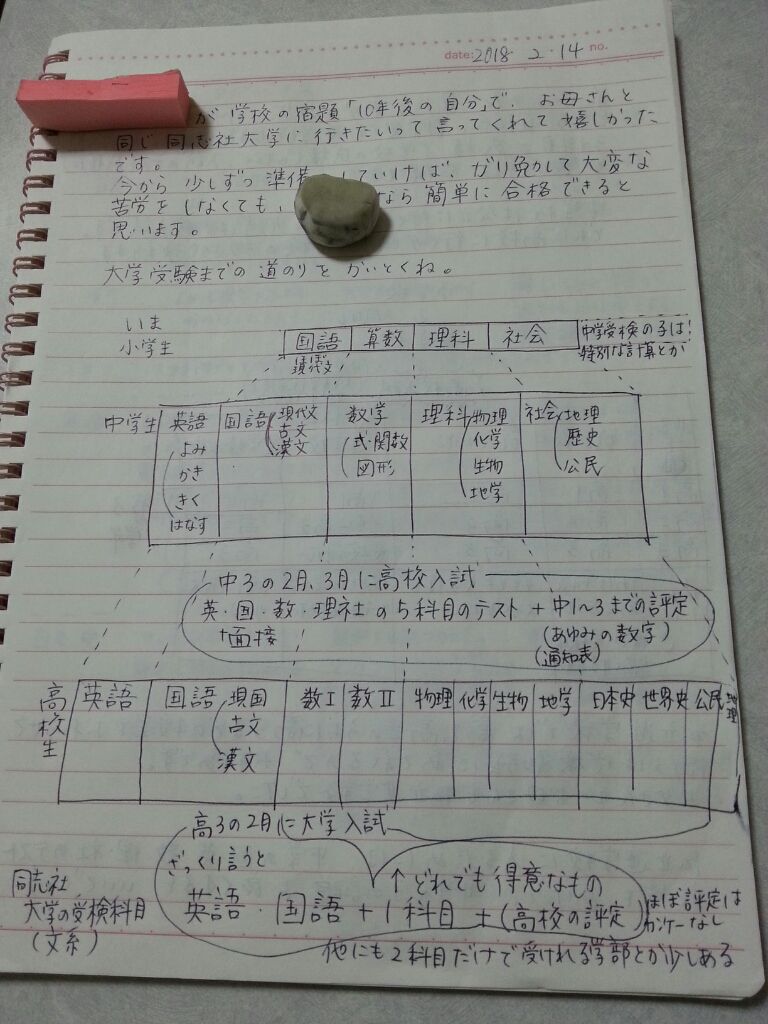 date: 2018. 2. 14 no.
が 学校の宿題「10年後の自分」で、お母さんと
同じ 同志社大学に行きたいって 言ってくれて 嬉しかった
です。
今から 少しずつ 準備 していけば、ガリ勉して大変な
苦労を しなくても、 なら 簡単に 合格できると
思います。
大学受験までの 道のりを かいとくね。
いま
小学生
国語 算数 理科 社会
ほぼ現代文
中学受検の子は
特別な計算とか
中学生 英語 国語 現代文 数学 理科 物理 社会 地理
よみ 古文 式・関数 化学 歴史
かき 漢文 図形 生物 公民
きく 地学
はなす
中3の2月、3月に高校入試
英・国・数・理社 の5科目のテスト + 中1〜3までの評定
+面接 (あゆみの数字)
(通知表)
高校生 英語 国語 現国 数I 数II 物理 化学 生物 地学 日本史 世界史 公民 地理
古文
漢文
高3の2月に大学入試
ざっくり言うと
↑どれでも得意なもの
同志社
大学の受検科目
(文系)
英語・国語 + 1科目 ± (高校の評定)
ほぼ評定は
カンケーなし
他にも2科目だけで受けれる学部とか少しある